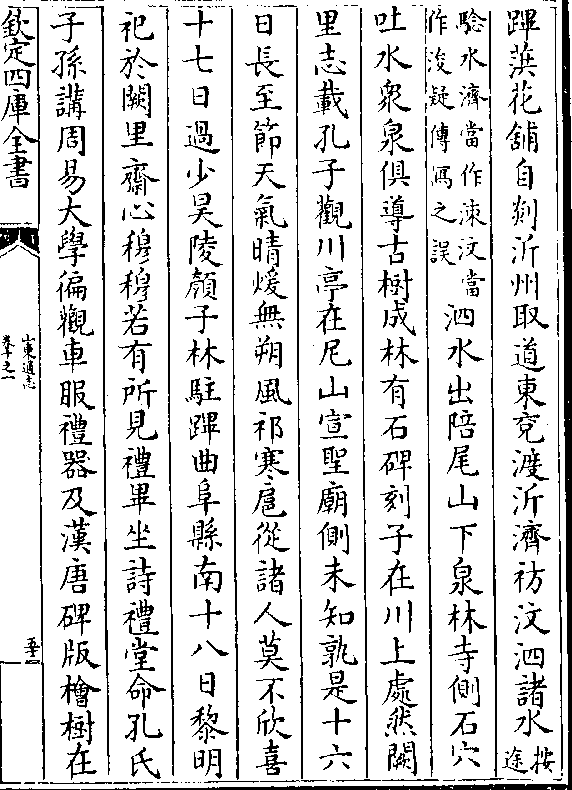 蹕蒲花舖自剡沂州取道東兖渡沂濟祊汶泗諸水按途
騐水濟當作涑汶當
作浚疑傳寫之誤
泗水出陪尾山下泉林寺側石穴
吐水衆泉俱導古樹成林有石碑刻子在川上處然闕
里志載孔子觀川亭在尼山宣聖廟側未知孰是十六
日長至節天氣晴煖無朔風祁寒扈從諸人莫不欣喜
十七日過少昊陵顔子林駐蹕曲阜縣南十八日黎明
祀於闕里齋心穆穆若有所見禮畢坐詩禮堂命孔氏
子孫講周易大學徧觀車服禮器及漢唐碑版檜樹在
欽定四庫全書
山東通志
卷十之一